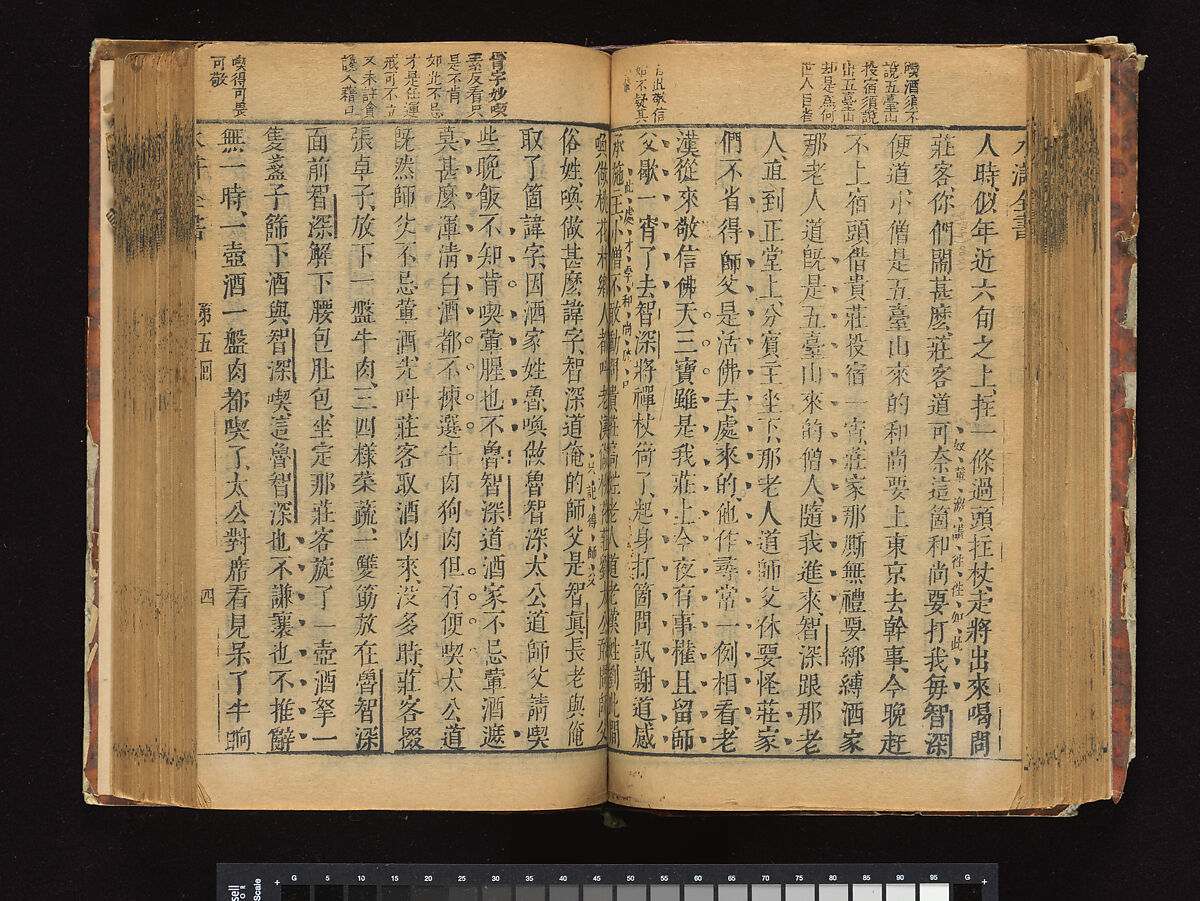 喫酒須不
說五臺山
投宿須說
出五臺山
却是無何
世人自省
敬信
水滸全書
人時似年近六旬之上拄一條過頭拄杖走將出來喝問
莊客你們鬧甚麽莊客道可奈這箇和尚要打我每智深
便道小僧是五臺山來的和尚要上東京去幹事今晚趕
不上宿頭借貴莊投宿一宵莊家那廝無禮要綁縛洒家
那老人道既是五臺山來的僧人隨我進來智深跟那老
人直到正堂上分賓主坐下那老人道師父休要怪莊家
們不省得師父是活佛去處來的他作尋常一例相看老
漢從來敬信佛天三寶雖是我莊上今夜有事權且留師
父歇一宵了去智深將禪杖倚了起身打箇問訊謝道感
承施主小僧不敢動問貴莊高姓老人道老漢姓劉此間
喚做桃花村鄉人都叫老漢做桃花莊劉太公敢問師父
俗姓喚做甚麽諱字智深道俺的師父是智真長老與俺
取了箇諱字因洒家姓魯喚做魯智深太公道師父請喫
些晚飯不知肯喫葷腥也不魯智深道洒家不忌葷酒遮
莫甚麽渾清白酒都不揀選牛肉狗肉但有便喫太公道
旣然師父不忌葷酒先叫莊客取酒肉來沒多時莊客掇
張卓子放下一盤牛肉三四樣菜蔬一雙筯放在魯智深
面前智深解下腰包肚包坐定那莊客旋了一壺酒拏一
隻盞子篩下酒與智深喫這魯智深也不謙讓也不推辭
無一時一壺酒一盤肉都喫了太公對席看見呆了半晌
肯字妙喫
素反看只
是不肯
如此不忌
才是任運
戒可不立
又未許貪
饞人藉口
喫得可畏
可敬
第五回
四